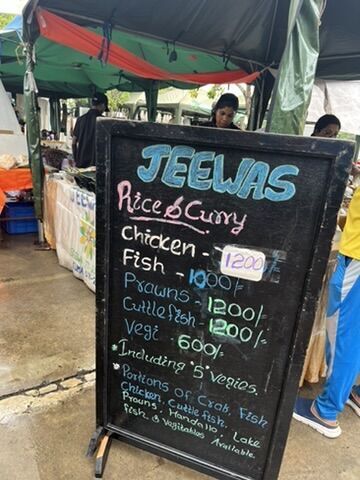 JEEWAS
Rice & Curry
Chicken - 1200/-
Fish - 1000/-
Prawns - 1200/-
Cuttlefish - 1200/-
Vegi - 600/-
* Including 5 Vegies.
* Portions of Crab, Fish
Chicken, Cuttlefish,
Prawns, Handallo, Lake
fish, & Vegitables Available.